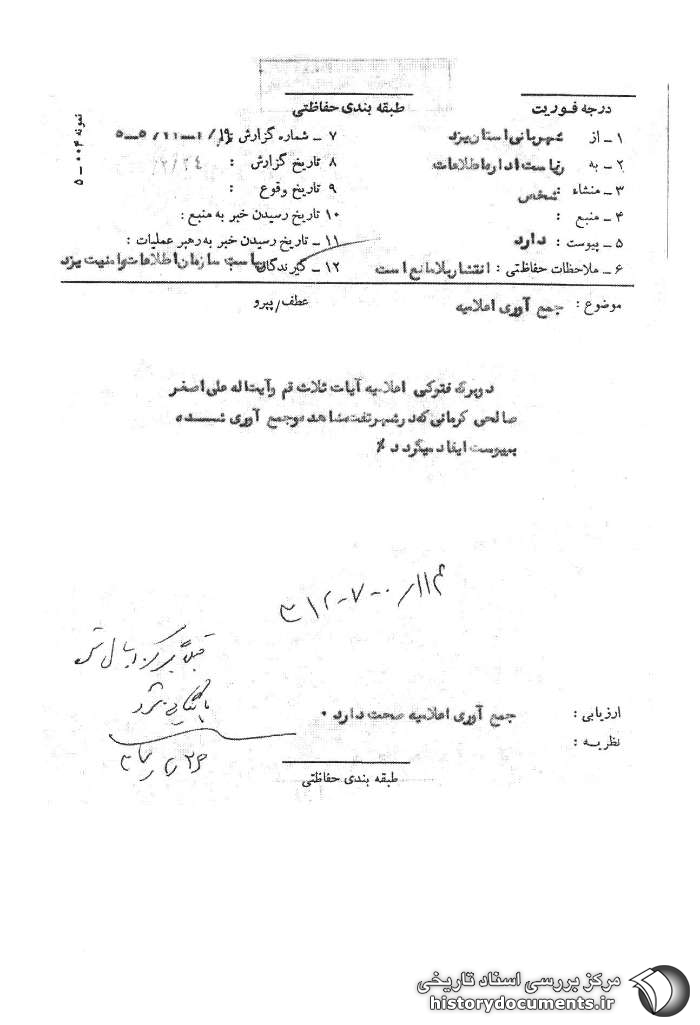 درجه فوریت
طبقه بندی حفاظتی
نمونه ۰۰۴ – ۵
۱ – از شهربانی استان یزد
۲ – به ریاست اداره اطلاعات
۳ – منشاء : شخص
۴ – منبع :
۵ – پیوست : دارد
۶ – ملاحظات حفاظتی : انتشار بلامانع است
۷ – شماره گزارش
۸ تاریخ گزارش : /۲/۲۴
۹ تاریخ وقوع :
۱۰ تاریخ رسیدن خبر به منبع :
۱۱ – تاریخ رسیدن خبر به رهبر عملیات :
۱۲ – گیرندگان ریاست سازمان اطلاعات و امنیت یزد
موضوع : جمع آوری اعلامیه
عطف/پیرو
دو برگ فتوکپی اعلامیه آیات ثلاث قم و آیت اله علی اصغر
صالحی کرمانی که در شهر تفت مشاهده و جمع آوری شده
بپیوست ایفاد میگردد ٪
۳۱۲-۷-۰
بایگانی شود
ارزیابی : جمع آوری اعلامیه صحت دارد ۰
نظریه :
طبقه بندی حفاظتی
مرکز بررسی اسناد تاریخی
historydocuments.ir